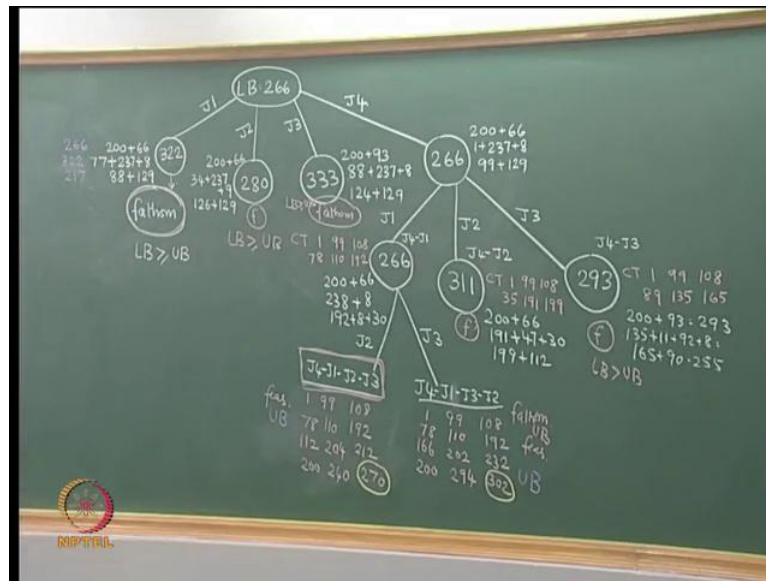 LB=266
J1
J2
J3
J4
266
322
217
200+66
77+237+8
88+129
322
fathom
LB ≥ UB
200+66
34+237
+9
126+129
280
f
LB ≥ UB
333
200+93
88+237+8
124+129
fathom
266
200+66
1+237+8
99+129
J1
J2
J3
J4-J1
266
CT 1 99 108
78 110 192
200+66
238+8
192+8+30
J4-J2
311
CT 1 99 108
35 191 199
f
200+66
191+47+30
199+112
J4-J3
293
CT 1 99 108
89 135 165
f
200+93=293
135+11+92+8=
165+90=255
LB > UB
J2
J3
J4-J1-J2-J3
feas.
UB
1 99 108
78 110 192
112 204 212
200 240 270
J4-J1-J3-J2
1 99 108
78 110 192
166 202 232
200 294 302
fathom
UB
feas.
UB
NPTEL